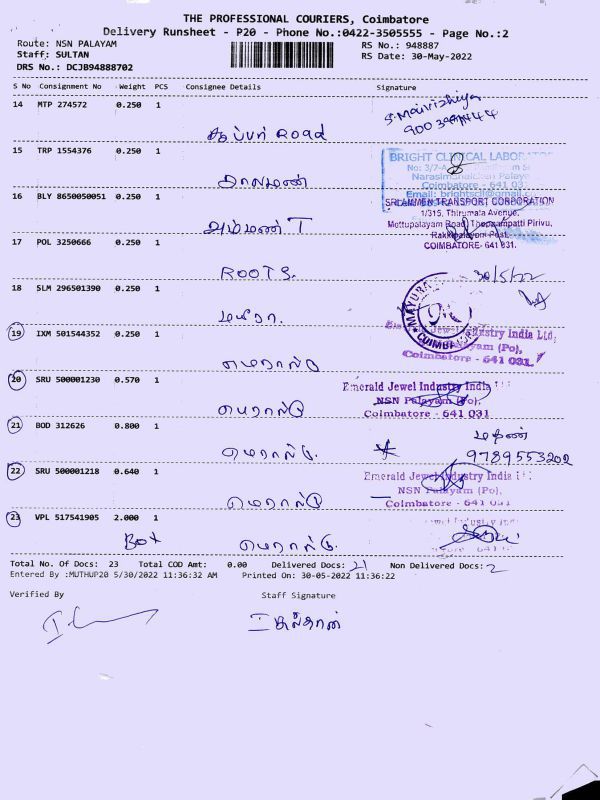 THE PROFESSIONAL COURIERS, Coimbatore
Delivery Runsheet - P20 - Phone No.:0422-3505555 - Page No.:2
Route: NSN PALAYAM
RS No.: 948887
Staff: SULTAN
RS Date: 30-May-2022
DRS No.: DCJB94888702
S No Consignment No Weight PCS Consignee Details Signature
14 MTP 274572 0.250 1
Road
15 TRP 1554376 0.250 1
BRIGHT CLINICAL LABOR
Narasimanaicken Palaya
Coimbatore - 641 03
16 BLY 8650050051 0.250 1
SRI AMMEN TRANSPORT CORPORATION
1/315, Thirumala Avenue,
Mettupalayam Road, Thoppampatti Pirivu,
Rakkipalayam Post,
COIMBATORE- 641 031.
அம்மன் T
17 POL 3250666 0.250 1
ROOTS.
30/5/22
18 SLM 296501390 0.250 1
மயூரா.
19 IXM 501544352 0.250 1
Jewel Industry India Ltd,
Palayam (Po),
Coimbatore - 641 031.
எமரால்டு
20 SRU 500001230 0.570 1
Emerald Jewel Industry India
NSN Palayam (Po),
Coimbatore - 641 031
எமரால்டு
21 BOD 312626 0.800 1
9789553202
எமரால்டு.
22 SRU 500001218 0.640 1
Emerald Jewel Industry India
NSN Palayam (Po),
Coimbatore - 641 031
எமரால்டு
23 VPL 517541905 2.000 1
Box எமரால்டு.
Total No. Of Docs: 23 Total COD Amt: 0.00 Delivered Docs: 21 Non Delivered Docs: 2
Entered By :MUTHUP20 5/30/2022 11:36:32 AM Printed On: 30-05-2022 11:36:22
Verified By Staff Signature
சுல்தான்